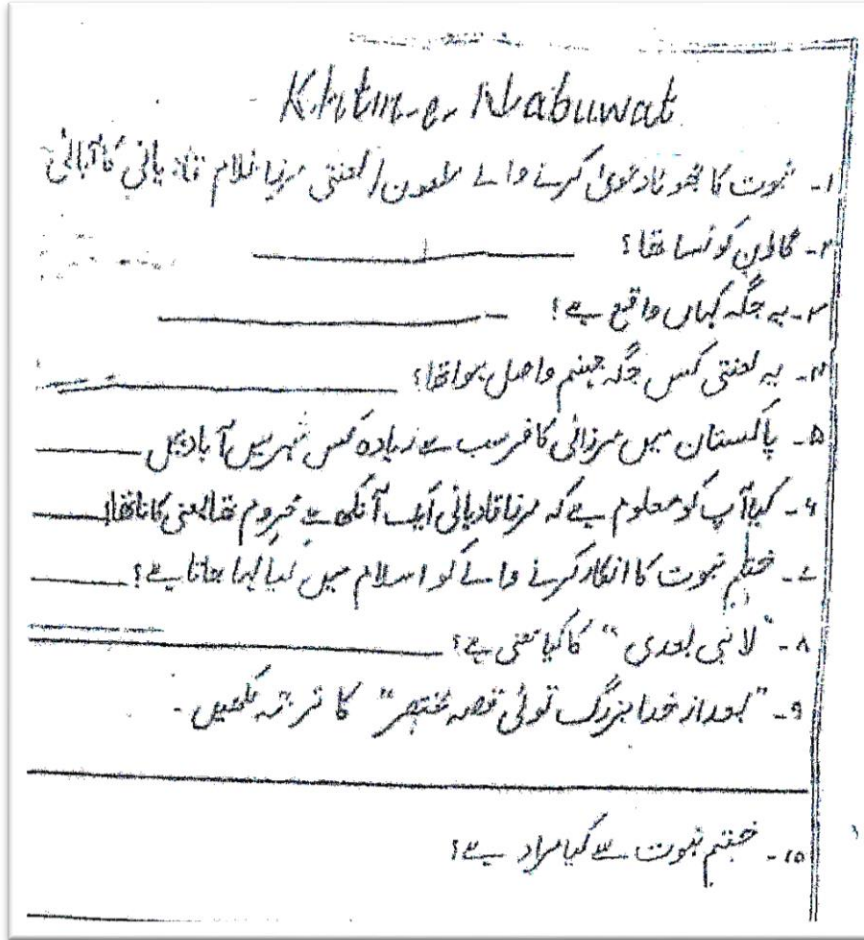 Khtm-e-Nabuwat
۱۔ نبوت کا جھوٹا دعویٰ کرنے والے ملعون/لعنتی مرزا غلام قادیانی کا آبائی
۲۔ گاؤں کونسا تھا؟
۳۔ یہ جگہ کہاں واقع ہے؟
۴۔ یہ لعنتی کس جگہ جہنم واصل ہوا تھا؟
۵۔ پاکستان میں مرزائی کافر سب سے زیادہ کس شہر میں آباد ہیں
۶۔ کیا آپ کو معلوم ہے کہ مرزا قادیانی ایک آنکھ سے محروم تھا یعنی کانا تھا
۷۔ ختم نبوت کا انکار کرنے والے کو اسلام میں کیا کہا جاتا ہے؟
۸۔ "لا نبی بعدی" کا کیا معنی ہے؟
۹۔ "بعد از خدا بزرگ توئی قصہ مختصر" کا ترجمہ لکھیں۔
۱۰۔ ختم نبوت سے کیا مراد ہے؟